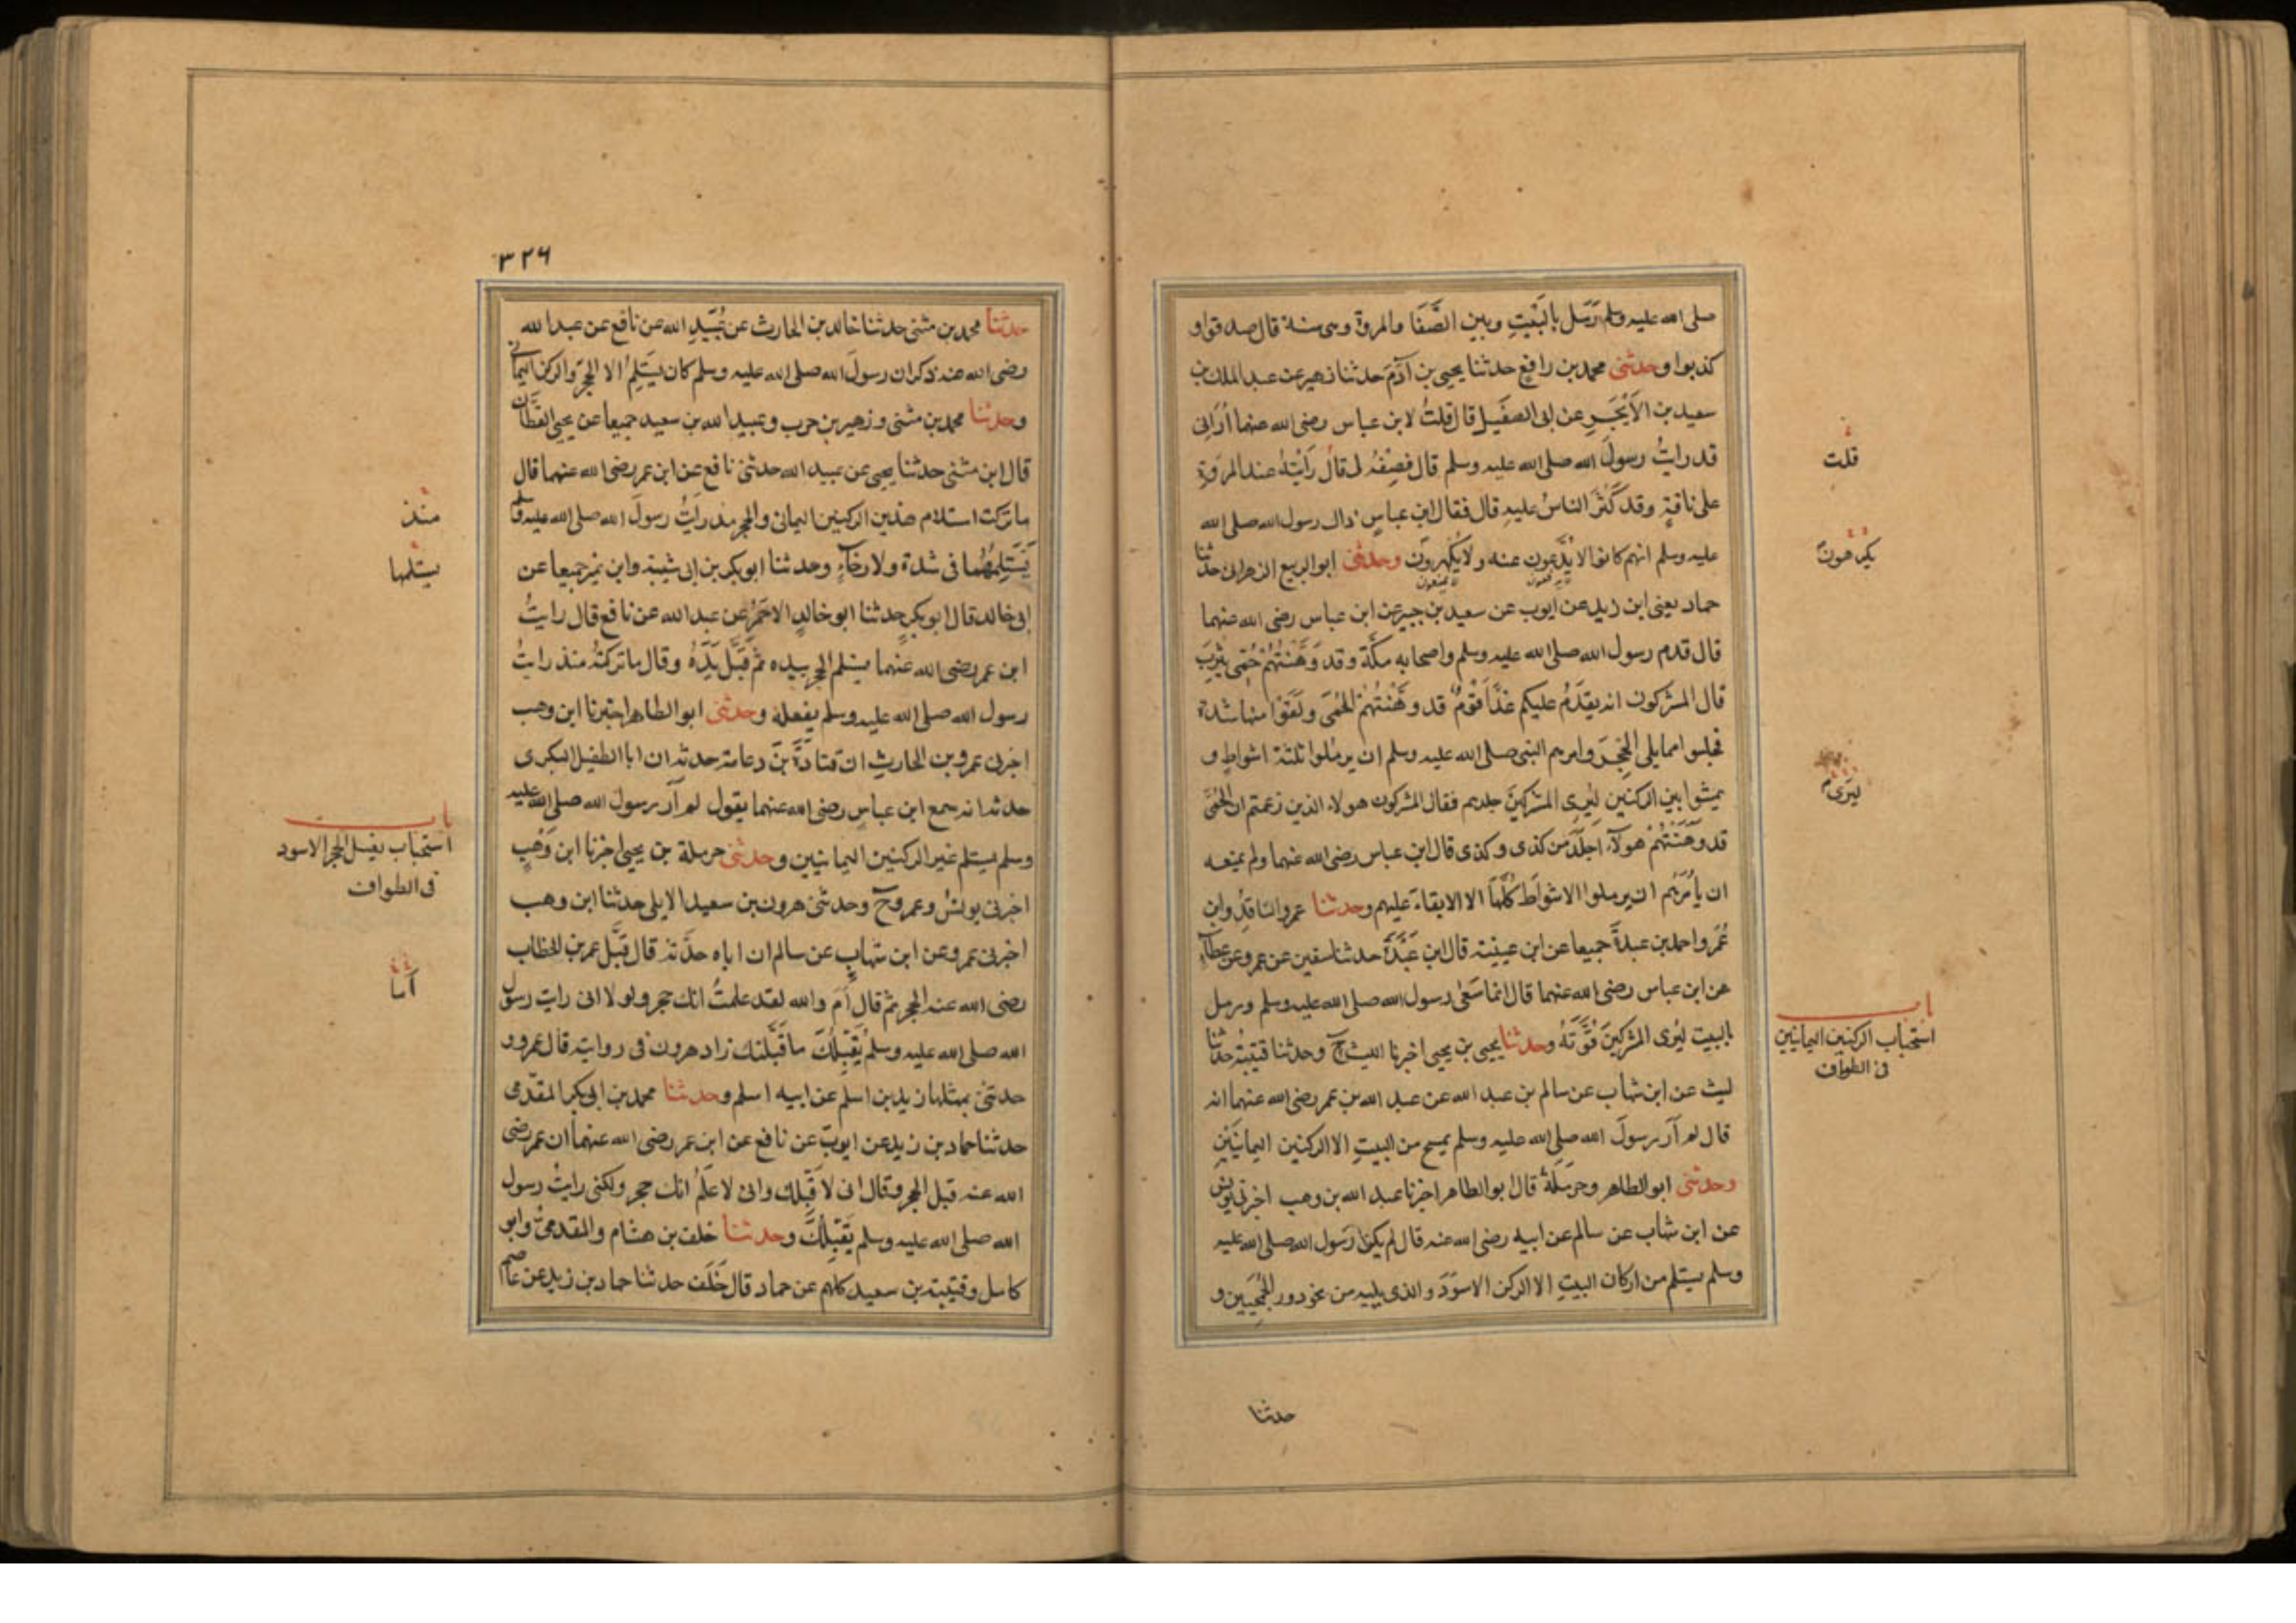 صلى الله عليه وسلم رَمَل بالبَيْتِ وبين الصَّفَا والمروة وهى سنة قال صدقوا و
كذبوا وحدثنى محمد بن رافع حدثنا يحيى بن آدَمَ حدثنا زهير عن عبد الملك بن
سعيد بن الاَبْجَرِ عن ابى الطفيل قال قلتُ لابن عباس رضى الله عنهما اُرَانِى
قد رايتُ رسولَ الله صلى الله عليه وسلم قال فصِفْهُ لى قال رَاَيْتُهُ عند المروَةِ
على ناقةٍ وقد كَثُرَ الناسُ عليه قال فقال ابن عباسٍ ذاك رسول الله صلى الله
عليه وسلم انهم كانوا لا يُدَعُّون عنه ولا يُكْهَرونَ وحدثنى ابو الربيع الزهرانى حدثنا
حماد يعنى ابن زيد عن ايوب عن سعيد بن جبير عن ابن عباس رضى الله عنهما
قال قدم رسول الله صلى الله عليه وسلم واصحابه مكَّةَ وقد وَهَنَتْهُمْ حُمَّى يثْرِبَ
قال المشركون انه يقدَمُ عليكم غدًا قَوْمٌ قد وهَنَتْهُمْ الحُمَّى ولَقَوْا منها شدة
فجلسوا مما يلى الحِجْرَ وامرهم النبى صلى الله عليه وسلم ان يرمُلوا ثلثة اشواطٍ و
يمشوا بين الركنين ليُرِى المشركينَ جلدهم فقال المشركون هولاء الذين زعمتم ان الحُمَّى
قد وَهَنَتْهُمْ هولآءِ اجلَدُ من كذى وكذى قال ابن عباس رضى الله عنهما ولم يمنعه
ان يأمُرَهُم ان يرملوا الاشواطَ كُلَّهَا الا الابقاءُ عليهم وحدثنا عمرو الناقِدُ وابن
عُمَرَ واحمد بن عبدةَ جميعا عن ابن عيينة قال ابن عَبْدَةَ حدثنا سفين عن عمرو عن عطآءٍ
عن ابن عباس رضى الله عنهما قال انما سَعَى رسول الله صلى الله عليه وسلم ورمل
بالبيت ليُرِى المشركينَ قُوَّتَهُ وحدثنا يحيى بن يحيى اخبرنا الليث ح وحدثنا قتيبة حدثنا
ليث عن ابن شهاب عن سالم بن عبد الله عن عبد الله بن عمر رضى الله عنهما انه
قال لم اَرَ رسولَ الله صلى الله عليه وسلم يمسح من البيتِ الا الركنين اليمانيَيْنِ
وحدثنى ابو الطاهر وحرمَلَةُ قال ابو الطاهر اخبرنا عبد الله بن وهب اخبرنى يونس
عن ابن شهاب عن سالم عن ابيه رضى الله عنه قال لم يكن رَسول الله صلى الله عليه
وسلم يستلم من اركان البيتِ الا الركن الاسوَدَ والذى يليه من نحو دور الجُمَحِيِّين و
حدثنا
قلت
يكرهون
ليَرَى
باب
استحباب الركنين اليمانيين
فى الطواف
٣٢٦
حدثنا محمد بن مثنى حدثنا خالد بن الحارث عن عُبَيْدِ الله عن نافع عن عبد الله
رضى الله عنه ذكر ان رسولَ الله صلى الله عليه وسلم كان يَسْتَلِمُ الا الحجَرَ والركن اليمانى
وحدثنا محمد بن مثنى وزهير بن حرب وعبيد الله بن سعيد جميعا عن يحيى القطَّان
قال ابن مثنى حدثنا يحيى عن عبيد الله حدثنى نافع عن ابن عمر رضى الله عنهما قال
ما تركت استلام هذين الركنين اليمانى والحجر مذ رايتُ رسولَ الله صلى الله عليه وسلم
يَسْتَلِمُهُمَا فى شدة ولا رخآءٍ وحدثنا ابو بكر بن ابى شيبة وابن نمير جميعا عن
ابى خالد قال ابو بكرٍ حدثنا ابو خالدٍ الاحمَرُ عن عبد الله عن نافع قال رايتُ
ابن عمر رضى الله عنهما يستلم الحجر بيده ثم قَبَّلَ يَدَهُ وقال ما تركتُه منذ رايتُ
رسول الله صلى الله عليه وسلم يفعله وحدثنى ابو الطاهر اخبرنا ابن وهب
اخبرنى عمرو بن الحارثِ ان قتادَةَ بنَ دعامة حدثه ان ابا الطفيل البكرى
حدثه انه سمع ابن عباسٍ رضى الله عنهما يقول لم اَرَ رسولَ الله صلى الله عليه
وسلم يستلم غير الركنين اليمانيين وحدثنى حرملة بن يحيى اخبرنا ابن وَهْبٍ
اخبرنى يونسُ وعمرو ح وحدثنى هرون بن سعيد الايلى حدثنا ابن وهب
اخبرنى عمرو عن ابن شهابٍ عن سالم ان اباه حدَّثه قال قَبَّل عمر بن الخطاب
رضى الله عنه الحجر ثم قال اَمَ والله لقد علمتُ انك حجر ولو لا انى رايت رسولَ
الله صلى الله عليه وسلم يُقَبِّلُكَ ما قَبَّلتك زاد هرون فى روايته قال عمرو و
حدثنى بمثلها زيد بن اسلم عن ابيه اسلم وحدثنا محمد بن ابى بكر المقدَّمى
حدثنا حماد بن زيد عن ايوبَ عن نافع عن ابن عمر رضى الله عنهما ان عمر رضى
الله عنه قبل الحجر وقال انى لاَقَبِّلك وانى لاعلَمُ انك حجر ولكنى رايتُ رسول
الله صلى الله عليه وسلم يُقَبِّلُكَ وحدثنا خلف بن هشام والمقدمىُّ وابو
كامل وقتيبة بن سعيد كلهم عن حماد قال خَلَف حدثنا حماد بن زيد عن عاصم
منذ
يستلمها
باب
استحباب تقبيل الحجر الاسود
فى الطواف
اَما